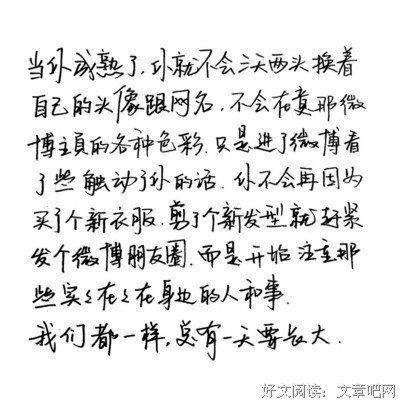 当你成熟了,你就不会三天两头换着
自己的头像跟网名,不会在意那微
博主页的各种色彩.只是进了微博看
了些触动了你的话.你不会再因为
买了个新衣服.剪了个新发型就赶紧
发个微博朋友圈.而是开始注重那
些实々在々在身边的人和事.
我们都一样,总有一天要长大.
好文阅读:文章吧网